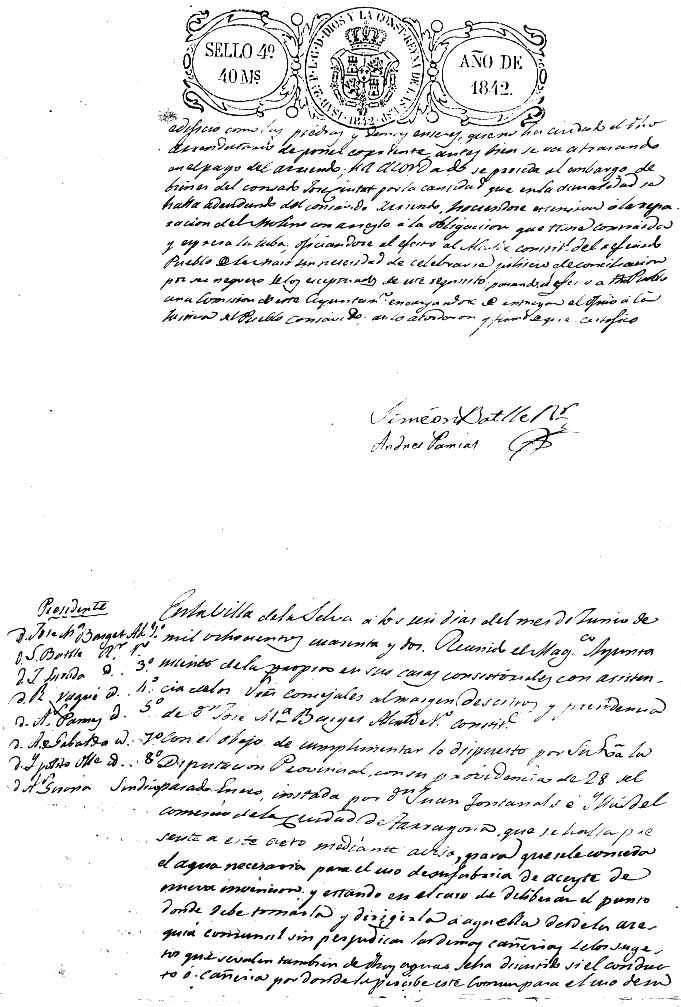 SELLO 4º
40 Ms
ISAB. 2ª P. L. G. D. DIOS Y LA CONST. REYNA DE LAS ESPAS. 1842
AÑO DE
1842.
edificio como las piedras y demas enseres, que no ha cuidado el dho
arrendatario de poner corriente antes bien se va atrasando
en el pago del arriendo. Ha acordado se proceda al embargo de
bienes del por la cantidad que en la actualidad se
halla adeudando del arriendo, haciendose estensivo á la repa-
racion del Molino con arreglo á la obligacion que tiene contraida
y espresa la, oficiandose al efecto al Alcalde constitl. del referido
Pueblo de la sin necesidad de celebrarse juicio de conciliacion
por ser negocio de los esceptuados de este requisito, pasando al efecto a Pueblo
una Comision de este Ayuntamto. encargandose de entregar el oficio á la
Justicia del Pueblo. asi lo acordaron y firman de que certifico
Simeon Batlle Rr.
Andres Pamies
Presidente
D. Jose Mª Barget Al. 1º
D. S. Batlle Rr. 1º
D. J. d. 3º
D. R. Vaqué d. 4º
D. A. Pamies d. 5º
D. A. de d. 7º
D. d. 8º
D. Sindico
En la Villa de la Selva á los seis dias del mes de Junio de
mil ochocientos cuarenta y dos. Reunido el Magco. Ayunta
miento de la propia en sus casas consistoriales con asisten-
cia de los Sres. concejales al margen descritos y presidencia
de Dn. Jose Mª Barget Alcalde 1º constitl.
Con el objeto de cumplimentar lo dispuesto por Su Eª la
Diputacion Provincial con su providencia de 28 del
pasado Enero, instada por Dn. Juan Fontanals é Hijos del
comercio de la Ciudad de Tarragona, que se halla pre
sente a este acto mediante aviso, para que se le conceda
el agua necesaria para el uso de su fabrica de aceyte de
nueva invencion y estando en el caso de deliberar el punto
donde debe tomarla y dirigirla a aquella desde la ace-
quia comunal sin perjudicar las demas cañerias de los suge-
tos que se valen tambien de dhas. aguas se ha discutido si el conduc-
to ó cañeria por donde la percibe este Comun para el uso de su